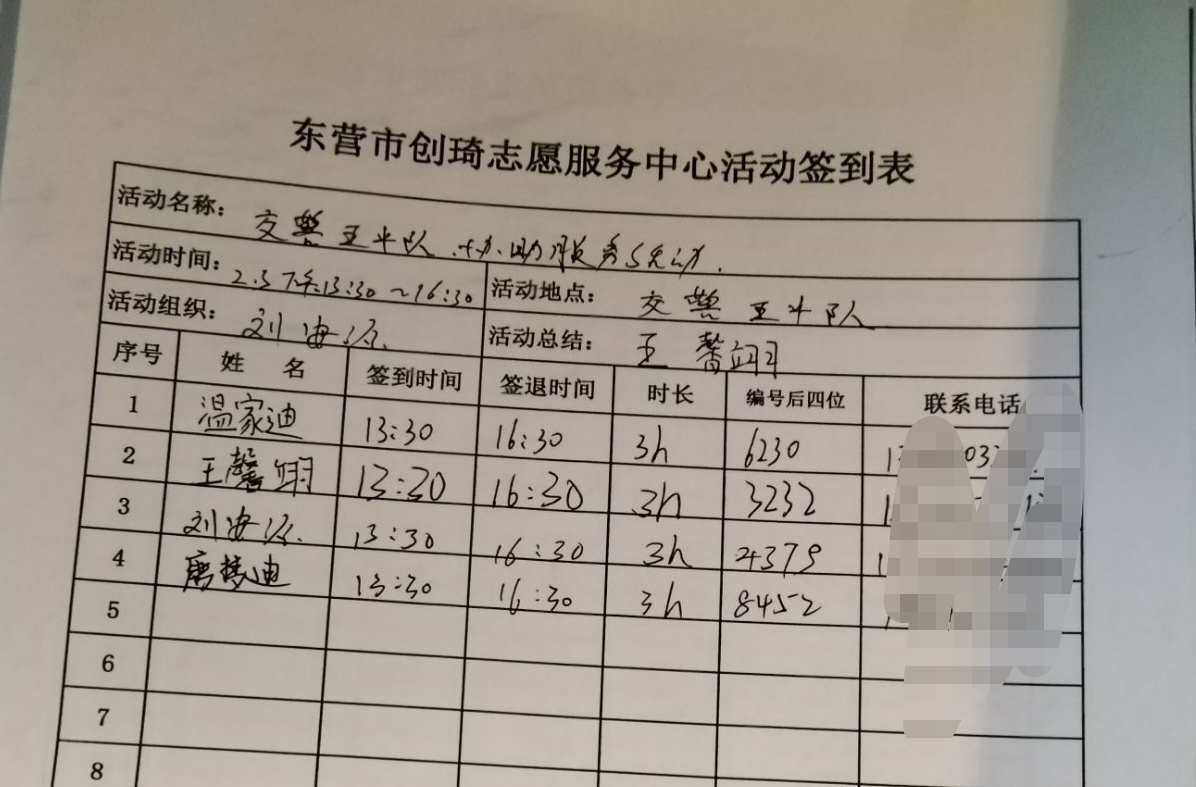 东营市创琦志愿服务中心活动签到表
活动名称: 交警五中队协助服务活动.
活动时间: 2.5 下午13:30~16:30 活动地点: 交警五中队
活动组织: 刘海 活动总结: 王馨翊
序号 姓名 签到时间 签退时间 时长 编号后四位 联系电话
1 温家迪 13:30 16:30 3h 6230
2 王馨翊 13:30 16:30 3h 3232
3 刘海 13:30 16:30 3h 4379
4 唐梦迪 13:30 16:30 3h 8452
5
6
7
8